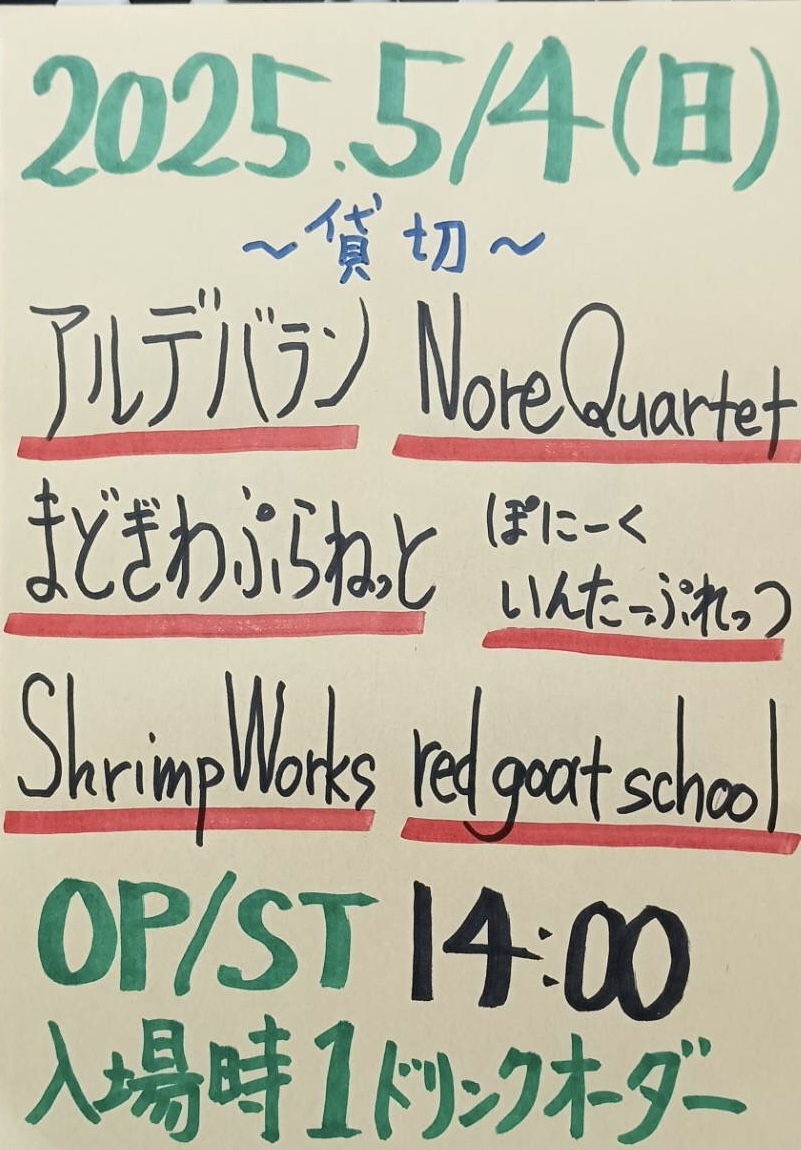 2025.5/4(日)
～貸切～
アルデバラン
NoreQuartet
まどぎわぷらねっと
ぽにーく
いんたーぷれっつ
ShrimpWorks
red goat school
OP/ST 14:00
入場時1ドリンクオーダー